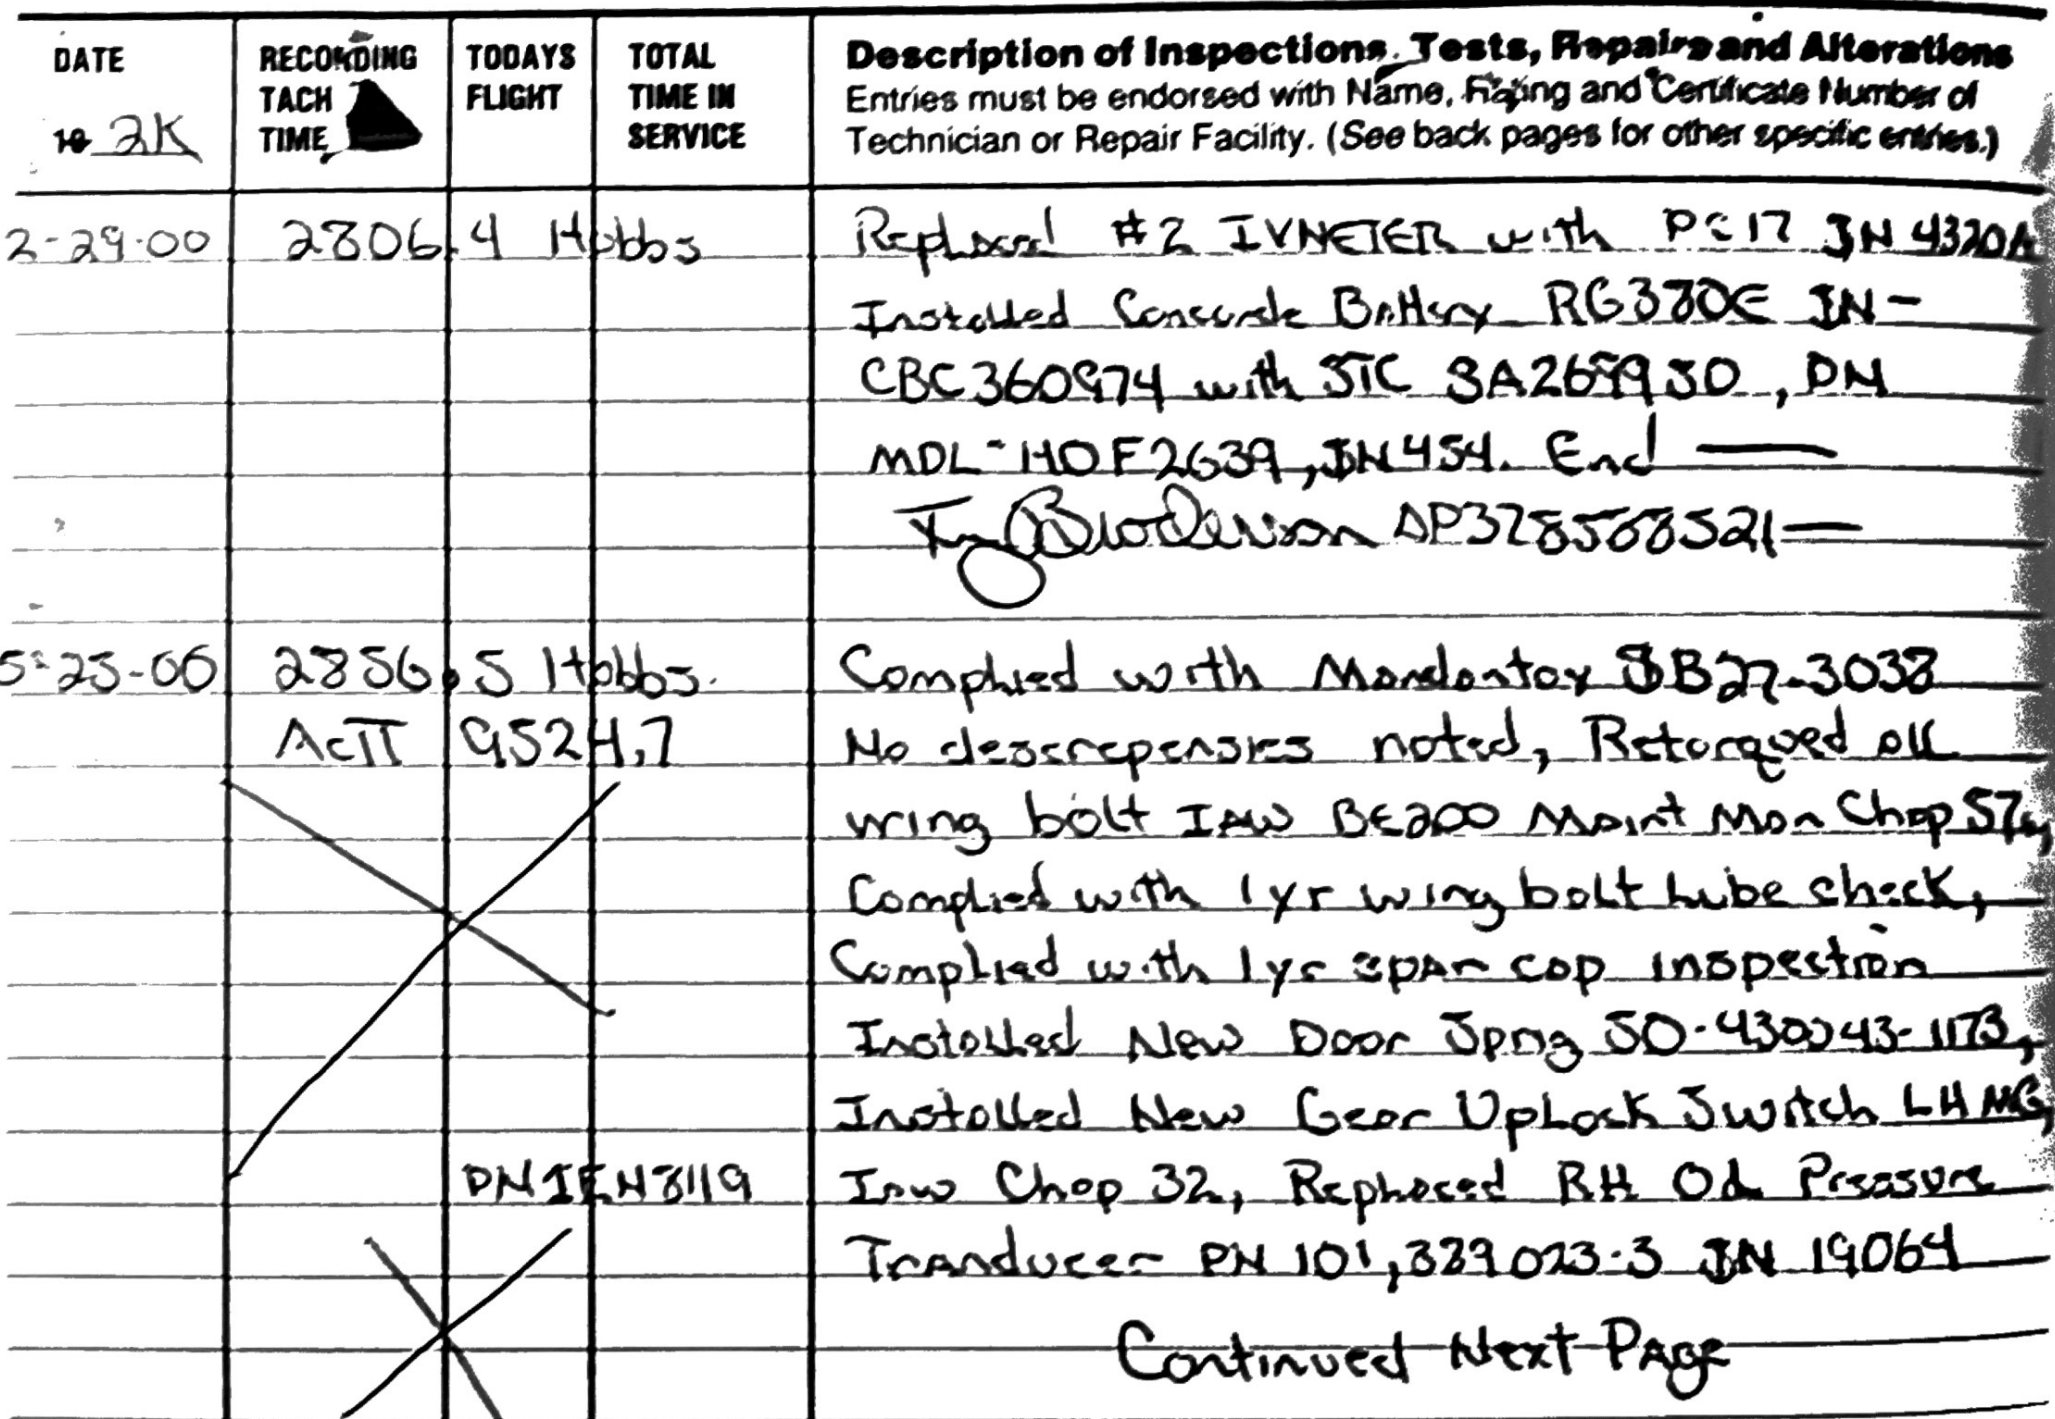 DATE
19 2K
RECORDING
TACH
TIME
TODAYS
FLIGHT
TOTAL
TIME IN
SERVICE
Description of Inspections, Tests, Repairs and Alterations
Entries must be endorsed with Name, Rating and Certificate Number of
Technician or Repair Facility. (See back pages for other specific entries.)
2-29-00 2806.4 Hobbs Replaced #2 IVNETER with PC17 SN 4320A
Installed Concorde Battery RG380E SN-
CBC360974 with STC , PN
MDL-HOF2639, SN454. End
Broderson
5-23-00 2856.5 Hobbs. Complied with Mandantoy SB27-3038
ACTT 9524.7 No descrepensies noted, Retorqued all
wing bolt IAW BE200 Maint Man Chap 57,
Complied with 1yr wing bolt Lube check,
Complied with 1yr spar cap inspection
Installed New Door Spng
Installed New Gear UpLock Switch LH MG,
Iaw Chap 32, Replaced RH Oil Pressure
Tranducer PN 101,389023-3 SN 19064
Continued Next Page